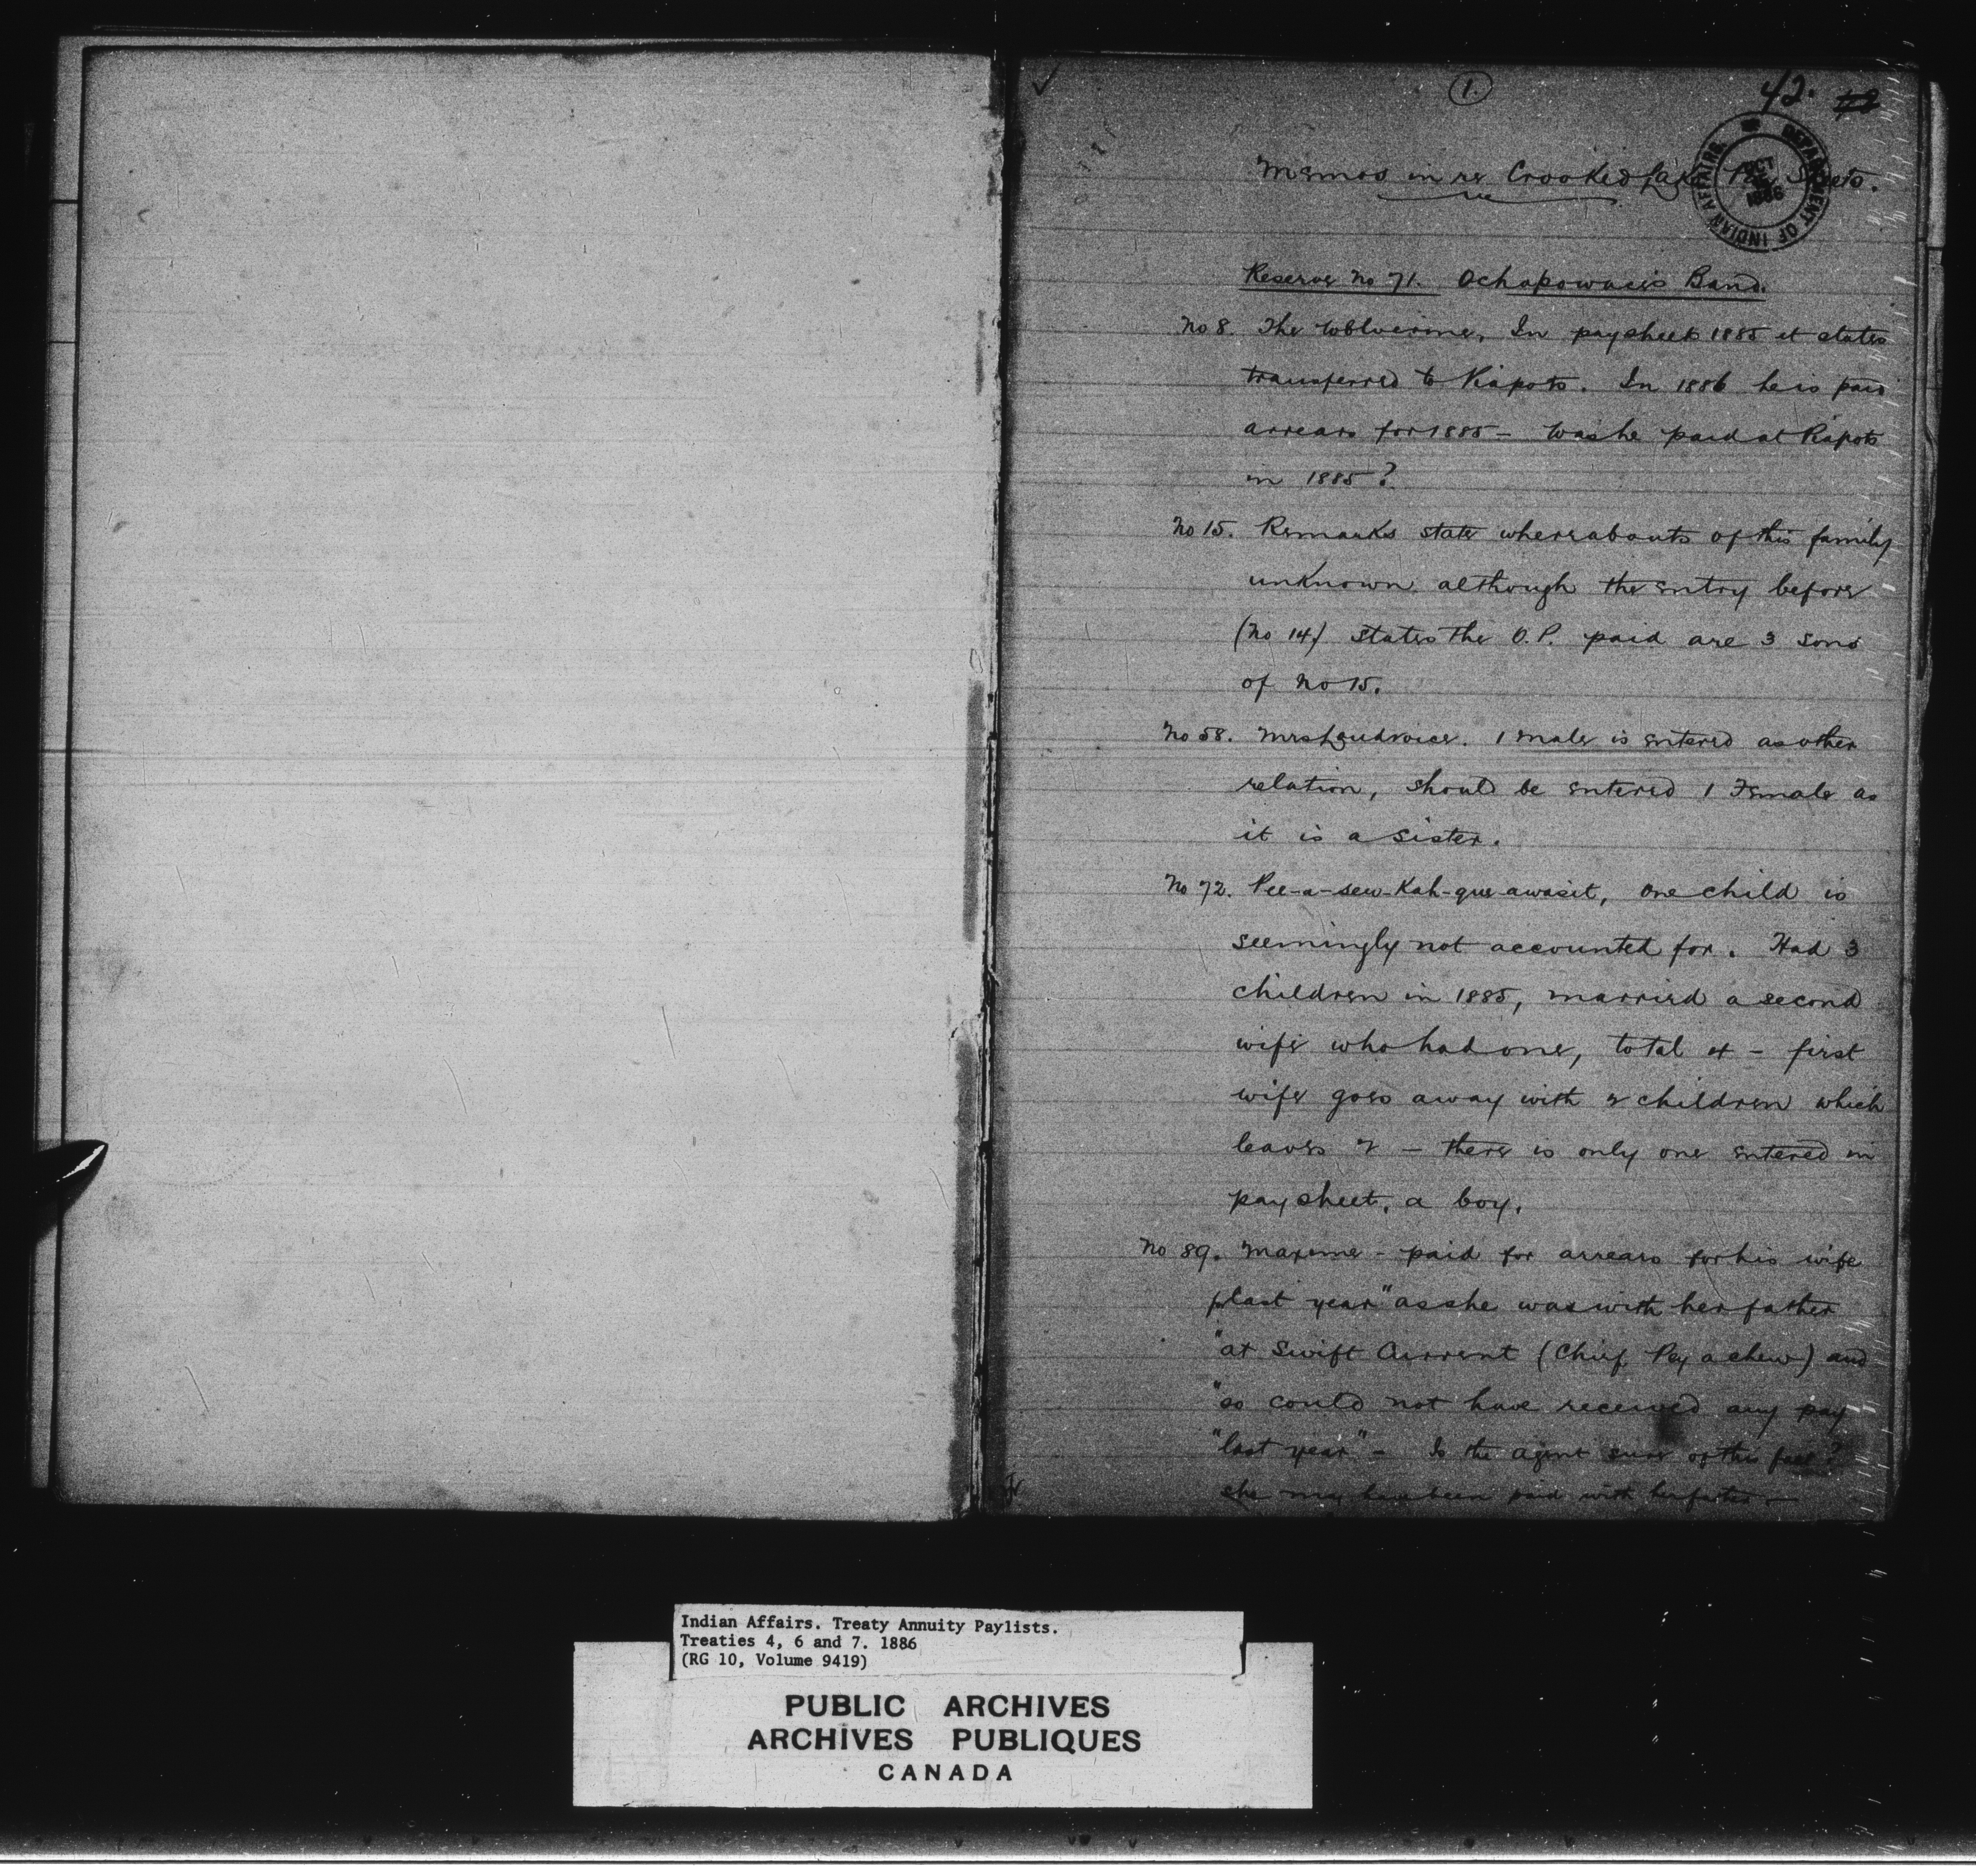 1.
42.
Memos in re Crooked Lake Pay Sheets.
DEPARTMENT OF INDIAN AFFAIRS
Reserve No 71. Ochapowacis Band.
No 8. The Wolverine, In paysheet 1885 it states
transferred to Piapots. In 1886 he is paid
arrears for 1885 - Was he paid at Piapots
in 1885?
No 15. Remarks state whereabouts of this family
unknown although the entry before
(No 14) states the O.P. paid are 3 sons
of No 15.
No 58. Mrs 1 male is entered as other
relation, should be entered 1 Female as
it is a sister.
No 72. Pee-a-sew-Kah-que-awasit, one child is
seemingly not accounted for. Had 3
children in 1885, married a second
wife who had one, total 4 - first
wife goes away with 2 children which
leaves 2 - there is only one entered in
pay sheet, a boy.
No 89. Maxime - paid for arrears for his wife
last year "as she was with her father
"at Swift Current (Chief Pey a chew) and
"so could not have received any pay
"last year" - Is the agent sure of this fact?
she may have been paid with her father -
Indian Affairs. Treaty Annuity Paylists.
Treaties 4, 6 and 7. 1886
(RG 10, Volume 9419)
PUBLIC ARCHIVES
ARCHIVES PUBLIQUES
CANADA